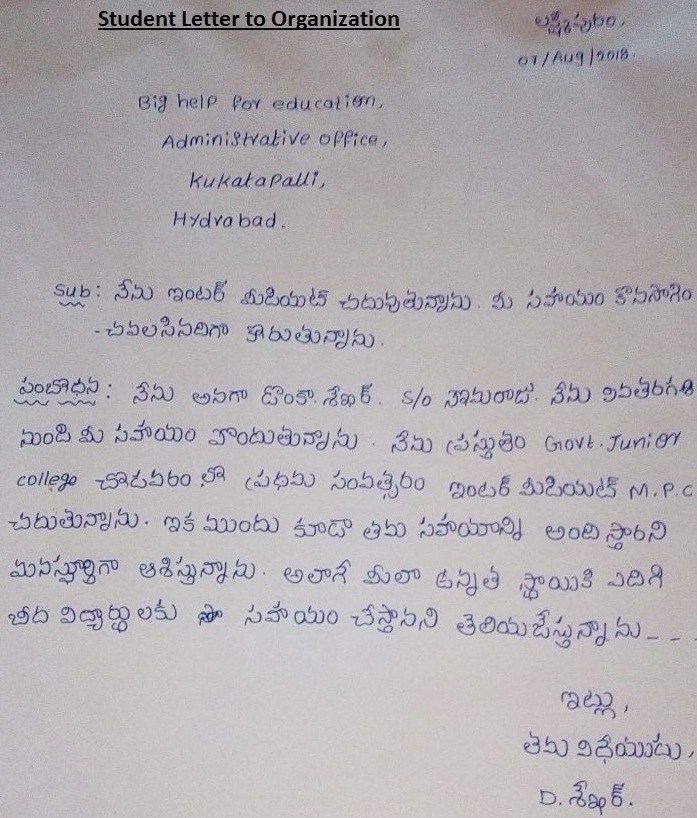 Student Letter to Organization
లక్ష్మీపురం,
07/Aug/2018.
Big help for education,
Administrative office,
Kukatapalli,
Hydrabad.
Sub: నేను ఇంటర్ మీడియట్ చదువుతున్నాను. మీ సహాయం కొనసాగిం
-చవలసినదిగా కోరుతున్నాను.
సంబోధన: నేను అనగా డొంకా. శేఖర్. S/o సోమరాజు. నేను 9వతరగతి
నుండి మీ సహాయం పొందుతున్నాను. నేను ప్రస్తుతం Govt. Junior
college చోడవరం లో ప్రధమ సంవత్సరం ఇంటర్ మీడియట్ M.P.C
చదుతున్నాను. ఇక ముందు కూడా తమ సహాయాన్ని అందిస్తారని
మనస్పూర్తిగా ఆశిస్తున్నాను. అలాగే మీలా ఉన్నత స్థాయికి ఎదిగి
బీద విద్యార్థులకు సహాయం చేస్తానని తెలియజేస్తున్నాను- - .
ఇట్లు,
తమ విధేయుడు,
D. శేఖర్.